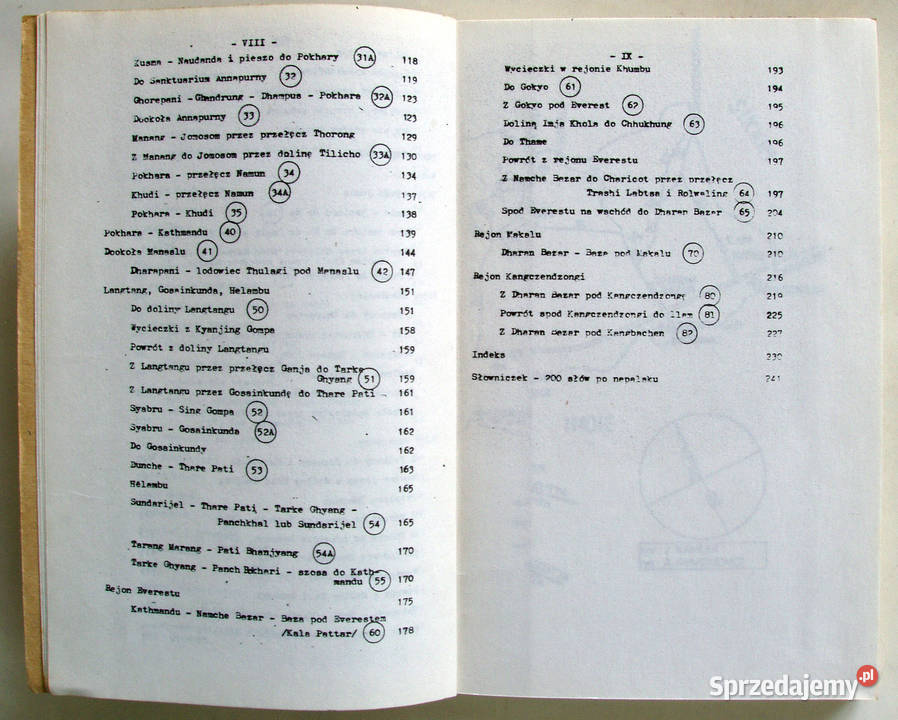 - VIII -
Kusma - Naudanda i pieszo do Pokhary 31A 118
Do Sanktuarium Annapurny 32 119
Ghorepani - Ghandrung - Dhampus - Pokhara 32A 123
Dookoła Annapurny 33 123
Manang - Jomosom przez przełęcz Thorong 129
Z Manang do Jomosom przez dolinę Tilicho 33A 130
Pokhara - przełęcz Namun 34 134
Khudi - przełęcz Namun 34A 137
Pokhara - Khudi 35 138
Pokhara - Kathmandu 40 139
Dookoła Manaslu 41 144
Dharapani - lodowiec Thulagi pod Manaslu 42 147
Langtang, Gosainkunda, Helambu 151
Do doliny Langtangu 50 151
Wycieczki z Kyanjing Gompa 158
Powrót z doliny Langtangu 159
Z Langtangu przez przełęcz Ganja do Tarke
Ghyang 51 159
Z Langtangu przez Gosainkundę do Thare Pati 161
Syabru - Sing Gompa 52 161
Syabru - Gosainkunda 52A 162
Do Gosainkundy 162
Dunche - Thare Pati 53 163
Helambu 165
Sundarijel - Thare Pati - Tarke Ghyang -
Panchkhal lub Sundarijel 54 165
Tarang Marang - Pati Bhanjyang 54A 170
Tarke Ghyang - Panch Pokhari - szosa do Kath-
mandu 55 170
Rejon Everestu 175
Kathmandu - Namche Bazar - Baza pod Everestem
/Kala Pattar/ 60 178
- IX -
Wycieczki w rejonie Khumbu 193
Do Gokyo 61 194
Z Gokyo pod Everest 62 195
Doliną Imja Khola do Chhukhung 63 196
Do Thame 196
Powrót z rejonu Everestu 197
Z Namche Bazar do Charicot przez przełęcz
Trashi Labtsa i Rolwaling 64 197
Spod Everestu na wschód do Dharan Bazar 65 204
Rejon Makalu 210
Dharan Bazar - Baza pod Makalu 70 210
Rejon Kangczendzongi 216
Z Dharan Bazar pod Kangczendzongę 80 219
Powrót spod Kangczendzongi do Ilam 81 225
Z Dharan Bazar pod Kangbachen 82 227
Indeks 230
Słowniczek - 200 słów po nepalsku 241
Sprzedajemy.pl